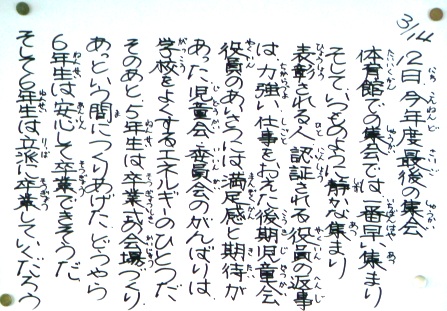 3/14
12日 今年度最後の集会
体育館での集会では一番早い集まり
そして、いつものように静かな集まり
表彰される人 認証される役員の返事
は、力強い 仕事をおえた後期児童会
役員のあいさつには満足感と期待が
あった 児童会・委員会のがんばりは、
学校をよくするエネルギーのひとつだ
そのあと、5年生は卒業式の会場づくり
あっという間につくりあげた どうやら
6年生は安心して卒業できそうだ
そして6年生は立派に卒業していくだろう